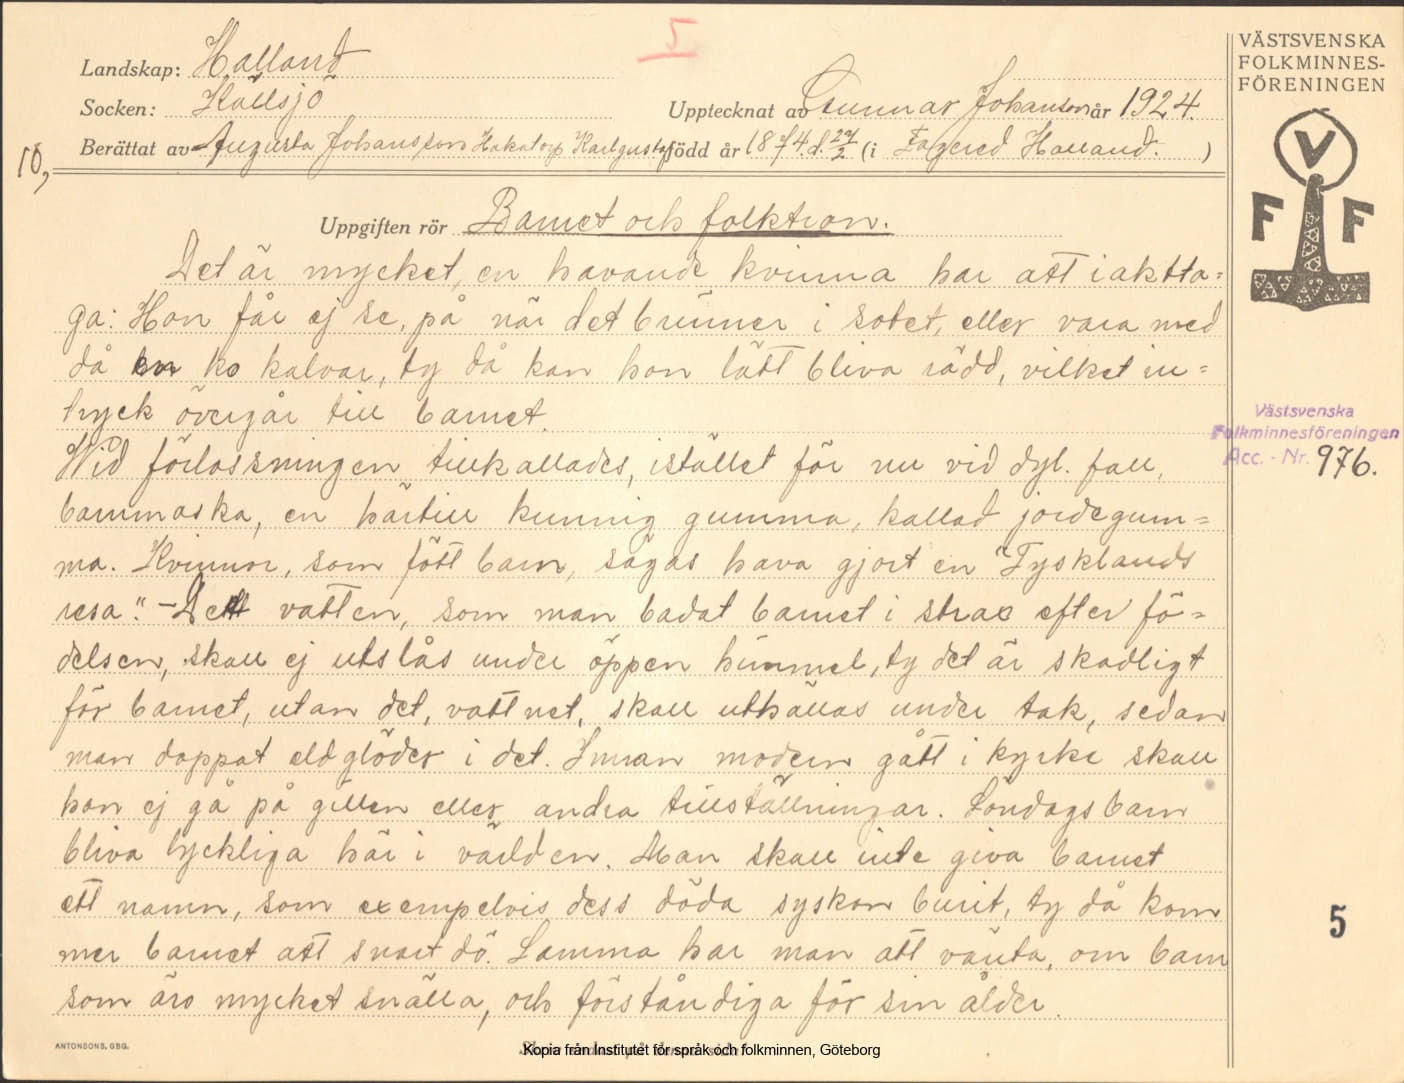 5
Landskap: Halland
Socken: Källsjö
Upptecknat av Gunnar Johansson år 1924.
Berättat av Augusta Johansson Hakatorp Karlgustaf född år 1874. d. 27/2 (i Fagered Halland. )
10,
Uppgiften rör Barnet och folktron.
Det är mycket, en havande kvinna har att iaktta=
ga: Hon får ej se, på när det brinner i sotet, eller vara med
då en ko kalvar, ty då kan hon lätt bliva rädd, vilket in=
tryck övergår till barnet.
Wid förlossningen tillkallades, istället för nu vid dyl. fall,
barnmorska, en härtill kunnig gumma, kallad jordegum=
ma. Kvinnor, som fött barn, sägas hava gjort en "Tysklands
resa". - Det vatten, som man badat barnet i strax efter fö=
delsen, skall ej utslås under öppen himmel, ty det är skadligt
för barnet, utan det, vattnet, skall uthällas under tak, sedan
man doppat eldglöder i det. Innan modern gått i kyrka skall
hon ej gå på gillen eller andra tillställningar. Söndagsbarn
bliva lyckliga här i världen. Man skall inte giva barnet
ett namn, som exempelvis dess döda syskon burit, ty då kom
mer barnet att snart dö. Samma har man att vänta, om barn
som äro mycket snälla, och förståndiga för sin ålder.
VÄSTSVENSKA
FOLKMINNES-
FÖRENINGEN
V
F F
Västsvenska
Folkminnesföreningen
Acc. - Nr. 976.
5
ANTONSONS, GBG.
Kopia från Institutet för språk och folkminnen, Göteborg